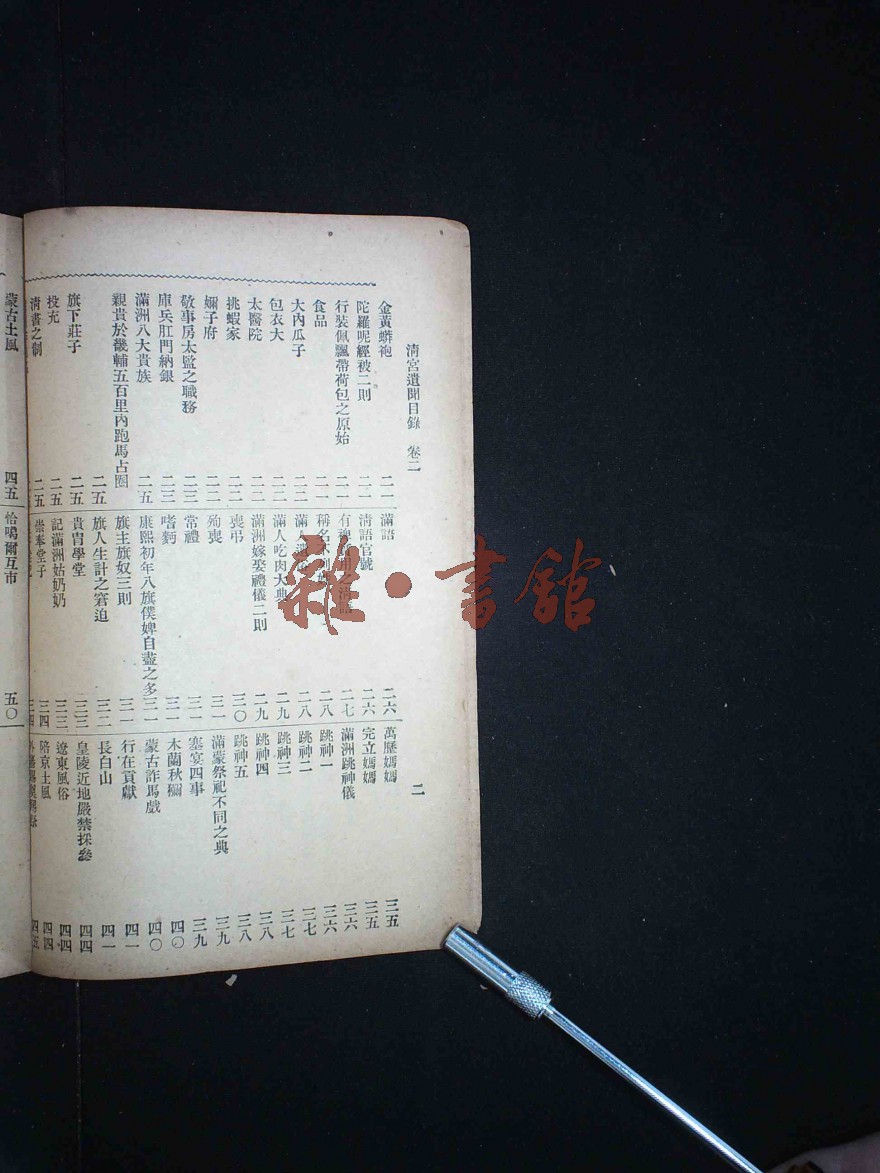 清宮遺聞目錄　卷二
二
金黃蟒袍　二一
陀羅呢經被二則　二一
行裝佩飄帶荷包之原始　二一
食品　二一
大內瓜子　二二
包衣大　二二
太醫院　二二
挑蝦家　二二
嬭子府　二二
敬事房太監之職務　二三
庫兵肛門納銀　二三
滿洲八大貴族　二五
親貴於畿輔五百里內跑馬占圈　二五
旗下莊子　二五
投充　二五
清書之制
滿語　二六
清語官號　二六
二七
二八
二八
滿人吃肉大典　二九
滿洲嫁娶禮儀二則　二九
喪弔　三〇
殉喪　三一
常禮　三一
嗜麪　三一
康熙初年八旗僕婢自盡之多　三一
旗主旗奴三則　三一
旗人生計之窘迫　三二
貴胄學堂　三三
記滿洲姑奶奶　三三
崇奉堂子　三四
三四
萬歷媽媽　三五
完立媽媽　三五
滿洲跳神儀　三六
跳神一　三六
跳神二　三七
跳神三　三七
跳神四　三八
跳神五　三八
滿蒙祭祀不同之典　三九
塞宴四事　三九
木蘭秋獮　四〇
蒙古詐馬戲　四〇
行在貢獻　四一
長白山　四一
皇陵近地嚴禁採參　四四
遼東風俗　四四
陪京土風　四四
四五
蒙古土風　四五
恰噶爾互市　五〇
雜·書館